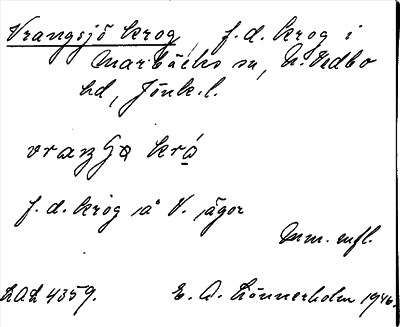 Vrangsjö krog, f.d. krog i
Marbäcks sn, N. Vedbo
hd, Jönk. l.
vraŋʃø krå
f.d. krog å V. ägor
Mm. mfl.
LAL 4359. E. A. Lönnerholm 1946.